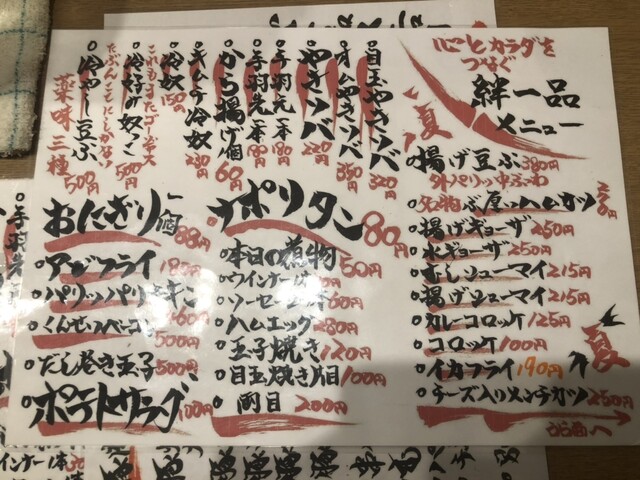 心とカラダを
つなぐ
絆一品
メニュー
揚げ豆ぶ 380円
外パリッ中ふわ
名物ぶ厚いハムカツ
揚げギョーザ 250円
水ギョーザ 250円
むしシューマイ 215円
揚げシューマイ 215円
カレーコロッケ 125円
コロッケ 100円
イカフライ 190円
チーズ入りメンチカツ 250円
うら面へ
夏
夏
目玉やきソバ 320円
オムやきソバ 350円
やきソバ 220円
手羽先一本 180円
手羽先一本 180円
から揚げ1個 60円
キムチ冷奴 230円
冷奴 150円
冷奴
500円
冷やし豆ぶ
薬味三種 500円
ナポリタン 80円
本日の煮物 150円
ウインナー
ソーセージ
ハムエッグ 280円
玉子焼き 120円
目玉焼き片目 100円
両目 200円
おにぎり一個 88円
アジフライ
パリッパリチキン
くんせいベーコン 500円
だし巻き玉子 500円
ポテトサラダ 100円
手羽先
ウインナー1本